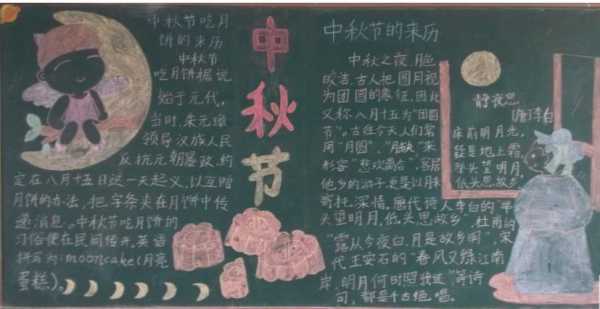 中秋节吃月
饼的来历
中秋节
吃月饼据说
始于元代,
当时,朱元璋
领导汉族人民
反抗元朝暴政,约
定在八月十五日这一天起义,以互赠
月饼的办法,把字条夹在月饼中传
递消息。中秋节吃月饼的
习俗便在民间传开,英语
拼写为:mooncake(月亮
蛋糕)。
中
秋
节
中秋节的来历
中秋之夜,月色
皎洁,古人把圆月视
为团圆的象征,因此
又称八月十五为“团圆
节”。古往今来人们常
用“月圆”、“月缺”来
形容“悲欢离合”,客居
他乡的游子,更是以月来
寄托深情。唐代诗人李白的“举
头望明月,低头思故乡”,杜甫的
“露从今夜白,月是故乡明”,宋
代王安石的“春风又绿江南
岸,明月何时照我还”等诗
句,都是千古绝唱。
静夜思
唐 李白
床前明月光,
疑是地上霜。
举头望明月,
低头思故乡。